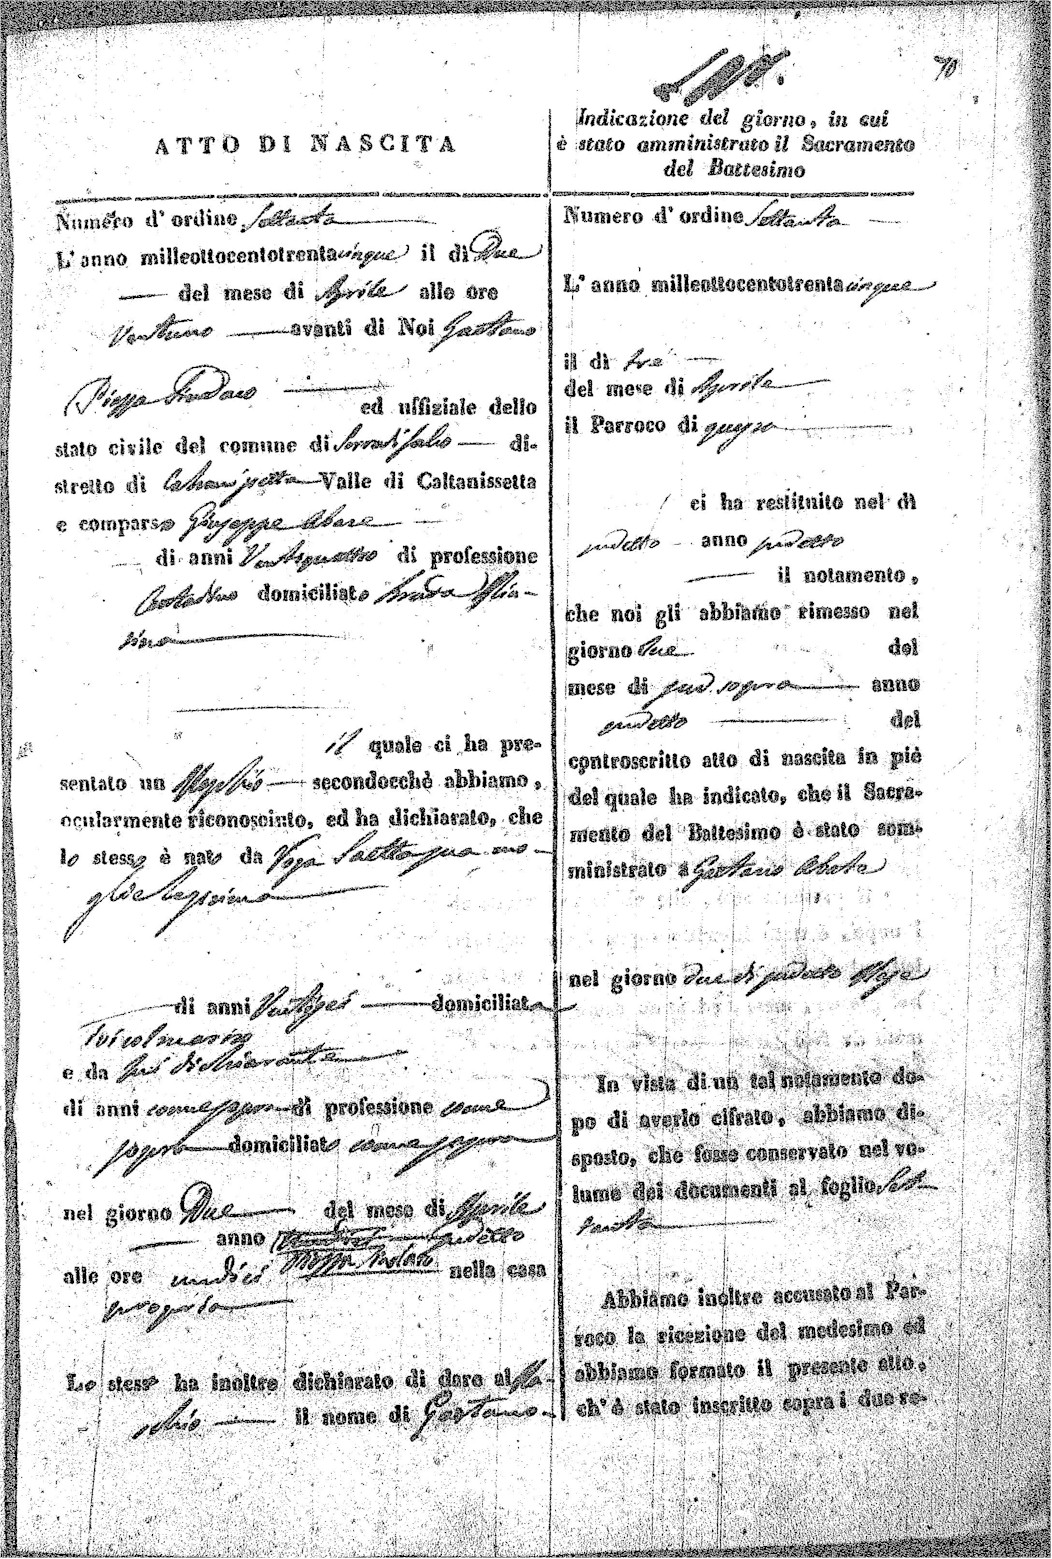 70
ATTO DI NASCITA
Numero d' ordine Settanta
L' anno milleottocentotrentacinque il dì Due
del mese di Aprile alle ore
Ventuno avanti di Noi Gaetano
Piazza Sindaco
ed uffiziale dello
stato civile del comune di Serradifalco di-
stretto di Caltanissetta Valle di Caltanissetta
e comparso Giuseppe Abate
di anni Ventiquattro di professione
Contadino domiciliato Strada
il quale ci ha pre-
sentato un Maschio secondocchè abbiamo,
ocularmente riconosciuto, ed ha dichiarato, che
lo stesso è nato da Saetta sua mo-
glie legitima
di anni Ventisei domiciliata
ivi col marito
e da lui dichiarante
di anni come sopra di professione come
sopra domiciliato come sopra
nel giorno Due del mese di Aprile
anno sudetto
alle ore undici nella casa
propria
Lo stesso ha inoltre dichiarato di dare al Ma-
schio il nome di Gaetano
Indicazione del giorno, in cui
è stato amministrato il Sacramento
del Battesimo
Numero d' ordine Settanta
L' anno milleottocentotrentacinque
il dì tre
del mese di Aprile
il Parroco di questa
ci ha restituito nel dì
sudetto anno sudetto
il notamento,
che noi gli abbiamo rimesso nel
giorno due del
mese di sud. sopra anno
sudetto del
controscritto atto di nascita in piè
del quale ha indicato, che il Sacra-
mento del Battesimo è stato som-
ministrato a Gaetano Abate
nel giorno due di sudetto Mese
In vista di un tal notamento do-
po di averlo cifrato, abbiamo di-
sposto, che fosse conservato nel vo-
lume dei documenti al foglio Set-
tanta
Abbiamo inoltre accusato al Par-
roco la ricezione del medesimo ed
abbiamo formato il presente atto,
ch' è stato inscritto sopra i due re-